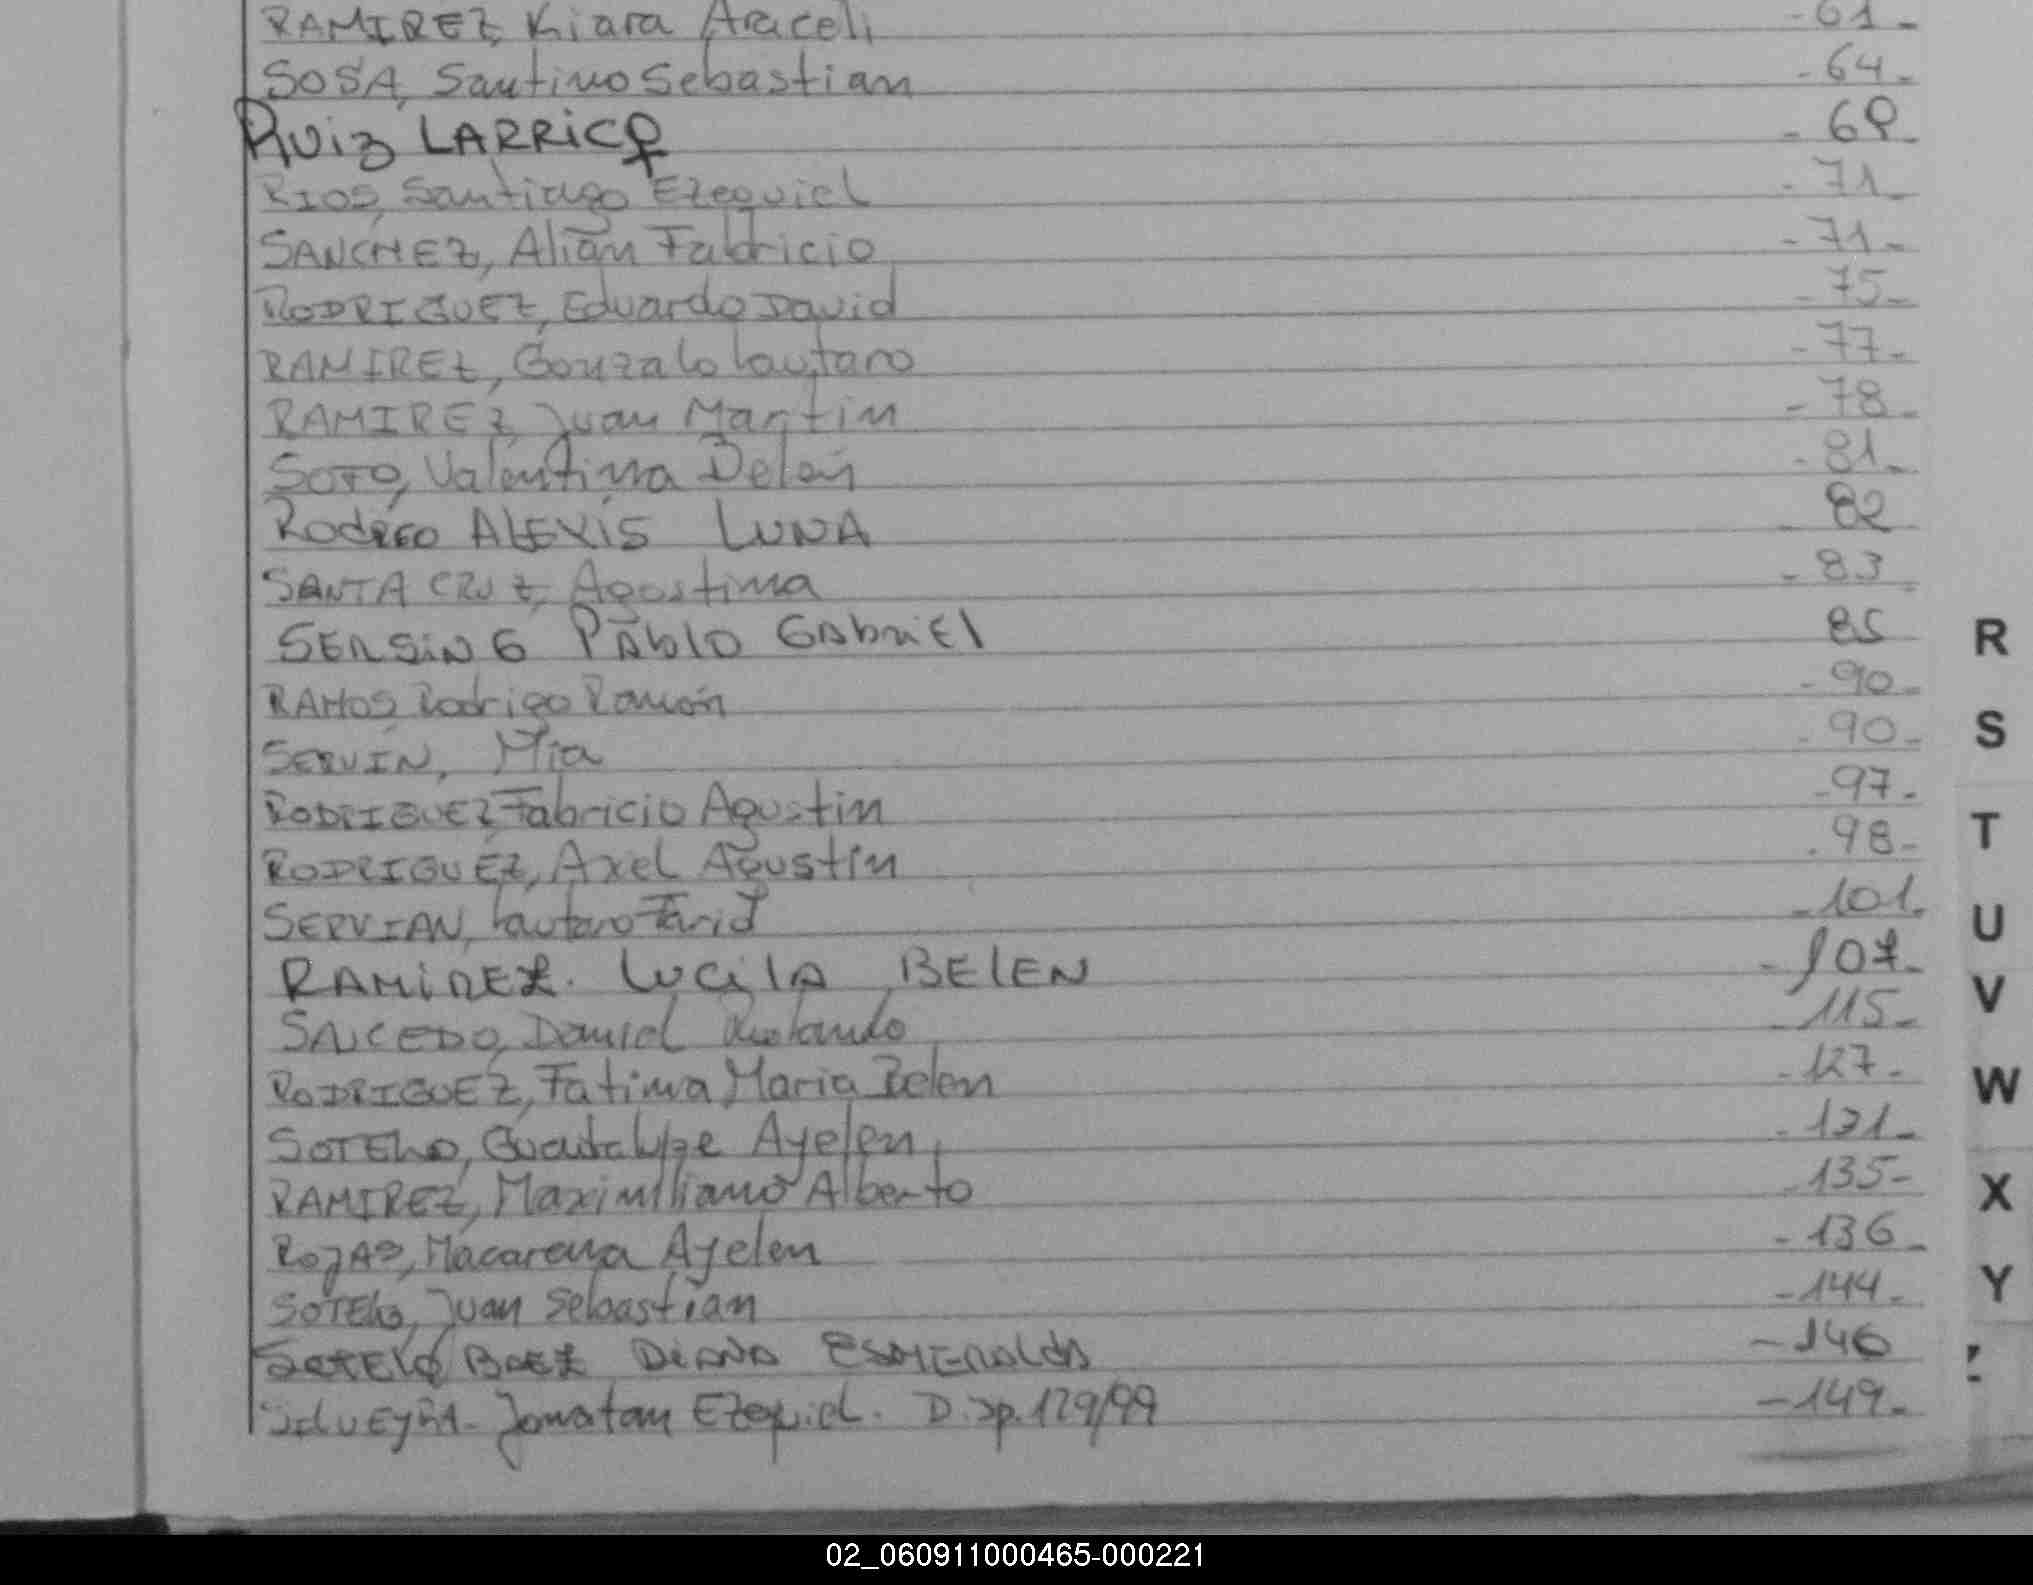 RAMIREZ, Kiara Araceli -61-
SOSA, Santino Sebastian -64-
Ruiz LARRIC♀ - 69-
RIOS, Santiago Ezequiel -71-
SANCHEZ, Alian Fabricio -71-
RODRIGUEZ, Eduardo David -75-
RAMIREZ, Gonzalo Lautaro -77-
RAMIREZ, Juan Martin -78-
SOTO, Valentina Belén -81-
Rodrigo ALEXIS LUNA - 82
SANTA CRUZ, Agostina -83
SERSING PAblO GAbriEl 85
R
RAMOS Rodrigo Ramón -90-
SERVIN, Mia -90-
S
RODRIGUEZ Fabricio Agustin -97-
RODRIGUEZ, Axel Agustin -98-
T
SERVIAN, Lautaro Farid -101-
U
RAMIREZ. LuCilA BElEN -107-
V
SALCEDO, Daniel Rolando -115-
RODRIGUEZ, Fatima Maria Belen -127-
W
SOTELO, Guadalupe Ayelen -131-
RAMIREZ, Maximiliano Alberto -135-
X
ROJAS, Macarena Ayelen -136-
SOTELO, Juan Sebastian -144-
Y
SOTELO BAEZ DiANA ESMERALDA -146
Z
SILVEYRA- Jonatan Ezequiel. D.Sp.129/99 -149-
02_060911000465-000221